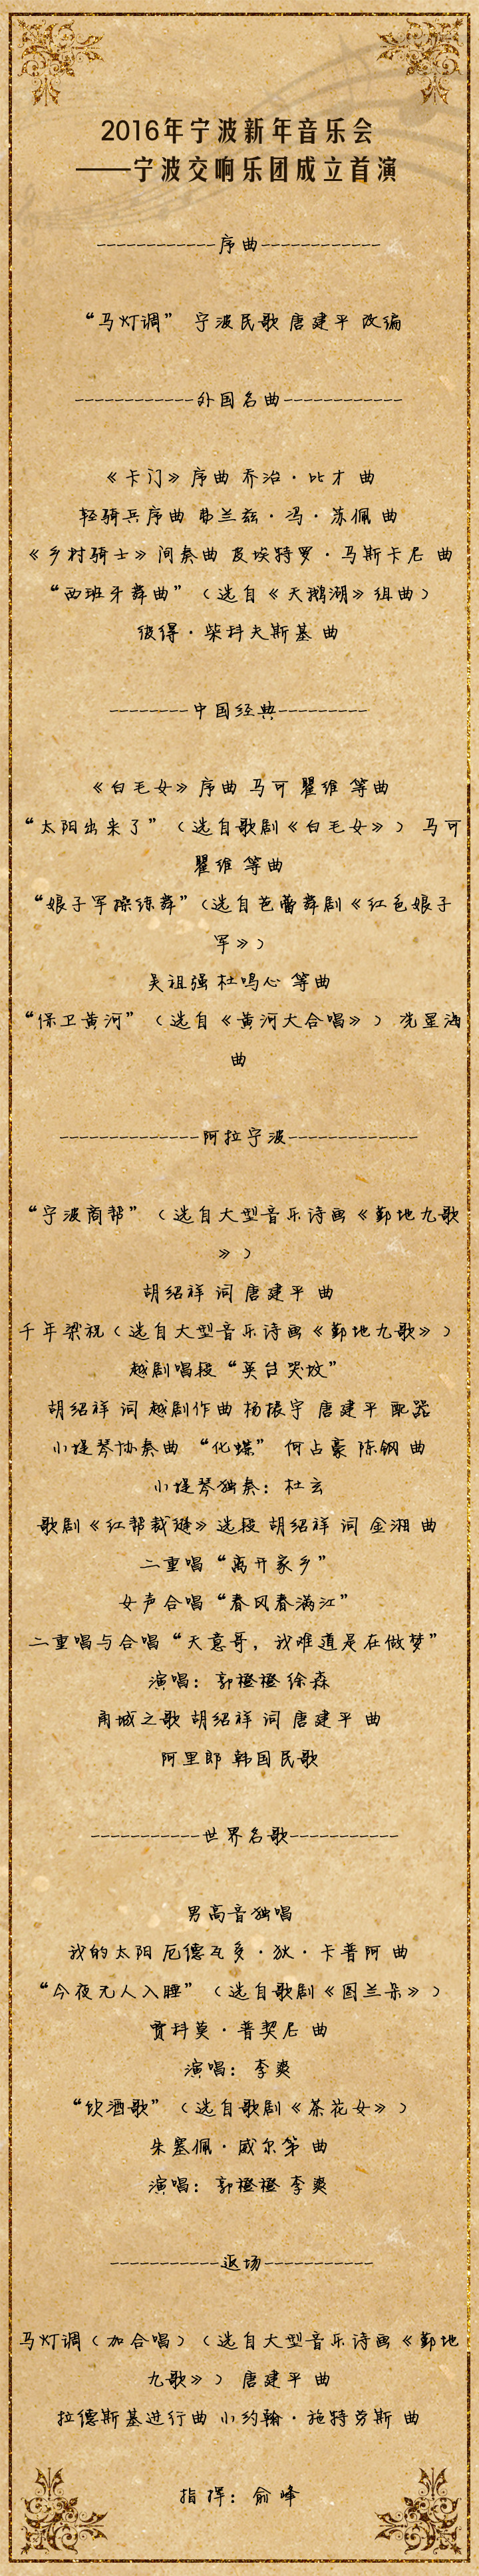 2016年宁波新年音乐会
——宁波交响乐团成立首演
------------序曲------------
“马灯调” 宁波民歌 唐建平 改编
------------外国名曲------------
《卡门》序曲 乔治·比才 曲
轻骑兵序曲 弗兰兹·冯·苏佩 曲
《乡村骑士》间奏曲 皮埃特罗·马斯卡尼 曲
“西班牙舞曲”（选自《天鹅湖》组曲）
彼得·柴科夫斯基 曲
--------中国经典---------
《白毛女》序曲 马可 瞿维 等曲
“太阳出来了”（选自歌剧《白毛女》） 马可
瞿维 等曲
“娘子军操练舞”(选自芭蕾舞剧《红色娘子
军》）
吴祖强 杜鸣心 等曲
“保卫黄河”（选自《黄河大合唱》） 冼星海
曲
--------------阿拉宁波-------------
“宁波商帮”（选自大型音乐诗画《鄞地九歌
》）
胡绍祥 词 唐建平 曲
千年梁祝（选自大型音乐诗画《鄞地九歌》）
越剧唱段“英台哭坟”
胡绍祥 词 越剧作曲 杨振宇 唐建平 配器
小提琴协奏曲 “化蝶” 何占豪 陈钢 曲
小提琴独奏：杜玄
歌剧《红帮裁缝》选段 胡绍祥 词 金湘 曲
二重唱“离开家乡”
女声合唱“春风春满江”
二重唱与合唱“天意哥，我难道是在做梦”
演唱：郭橙橙 徐森
甬城之歌 胡绍祥 词 唐建平 曲
阿里郎 韩国民歌
-----------世界名歌-----------
男高音独唱
我的太阳 厄德瓦多·狄·卡普阿 曲
“今夜无人入睡”（选自歌剧《图兰朵》）
贾科莫·普契尼 曲
演唱： 李爽
“饮酒歌”（选自歌剧《茶花女》）
朱塞佩·威尔第 曲
演唱：郭橙橙 李爽
-----------返场-----------
马灯调（加合唱）（选自大型音乐诗画《鄞地
九歌》） 唐建平 曲
拉德斯基进行曲 小约翰·施特劳斯 曲
指挥：俞峰